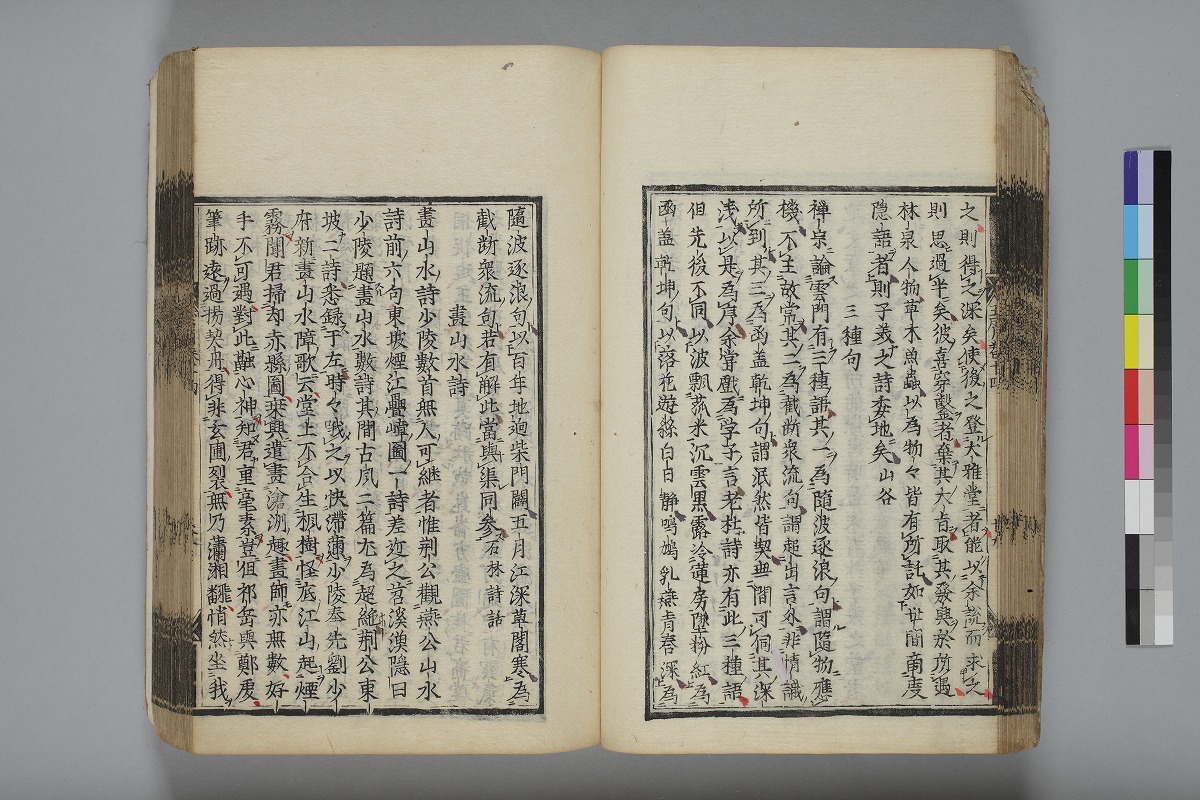 之則得之深矣使後之登大雅堂者能以余說而求之
則思過半矣彼喜穿鑿者棄其大旨取其發興於所遇
林泉人物草木魚蟲以爲物々皆有所託如世間商度
隱語者則子美之詩委地矣山谷
三種句
禅宗論雲門有三種語其一爲隨波逐浪句謂隨物應
機不主故常其二爲截断衆流句謂超出言外非情識
所到其三爲函盖乾坤句謂泯然皆契無間可伺其深
浅以是爲序余甞戲爲學子言老杜詩亦有此三種語
但先後不同以波飄菰米沉雲黒露冷蓮房墜粉紅爲
函盖乾坤句以落花遊絲白日静鳴鳩乳燕青春深爲
隨波逐浪句以百年地迥柴門闢五月江深草閣寒爲
截断衆流句若有解此當與渠同參石林詩話
畫山水詩
畫山水詩少陵數首無人可継者惟荆公觀燕公山水
詩前六句東坡煙江疊嶂圖一詩差近之苕溪漁隠曰
少陵題畫山水數詩其間古風二篇尤爲超絶荆公東
坡二詩悉録于左時々哦之以快滞懣少陵奉先劉少
府新畫山水障歌云堂上不合生楓樹怪底江山起煙
霧聞君掃却赤縣圖乗興遣畫滄洲趣畫師亦無數好
手不可遇對此融心神知君重毫素豈但祁岳與鄭虔
筆跡遠過揚契丹得非玄圃裂無乃瀟湘翻悄然坐我